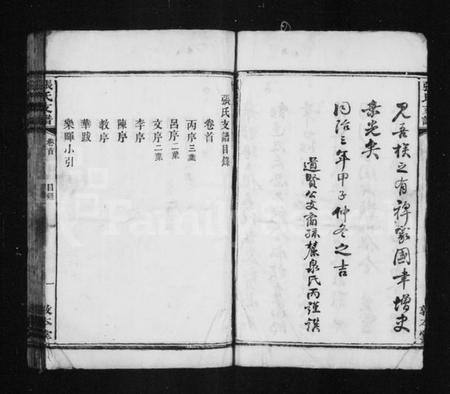 張氏支譜
見吾族之有裨家國幸增史
乘光矣
同治三年甲子仲冬之吉
道賢公支裔孫蓉泉氏丙謹撰
敦本堂
張氏支譜目錄
卷首
丙序三葉
呂序二葉
文序二葉
李序
陳序
教序
華跋
樂暉小引
張氏支譜
卷首
目錄
一
敦本堂